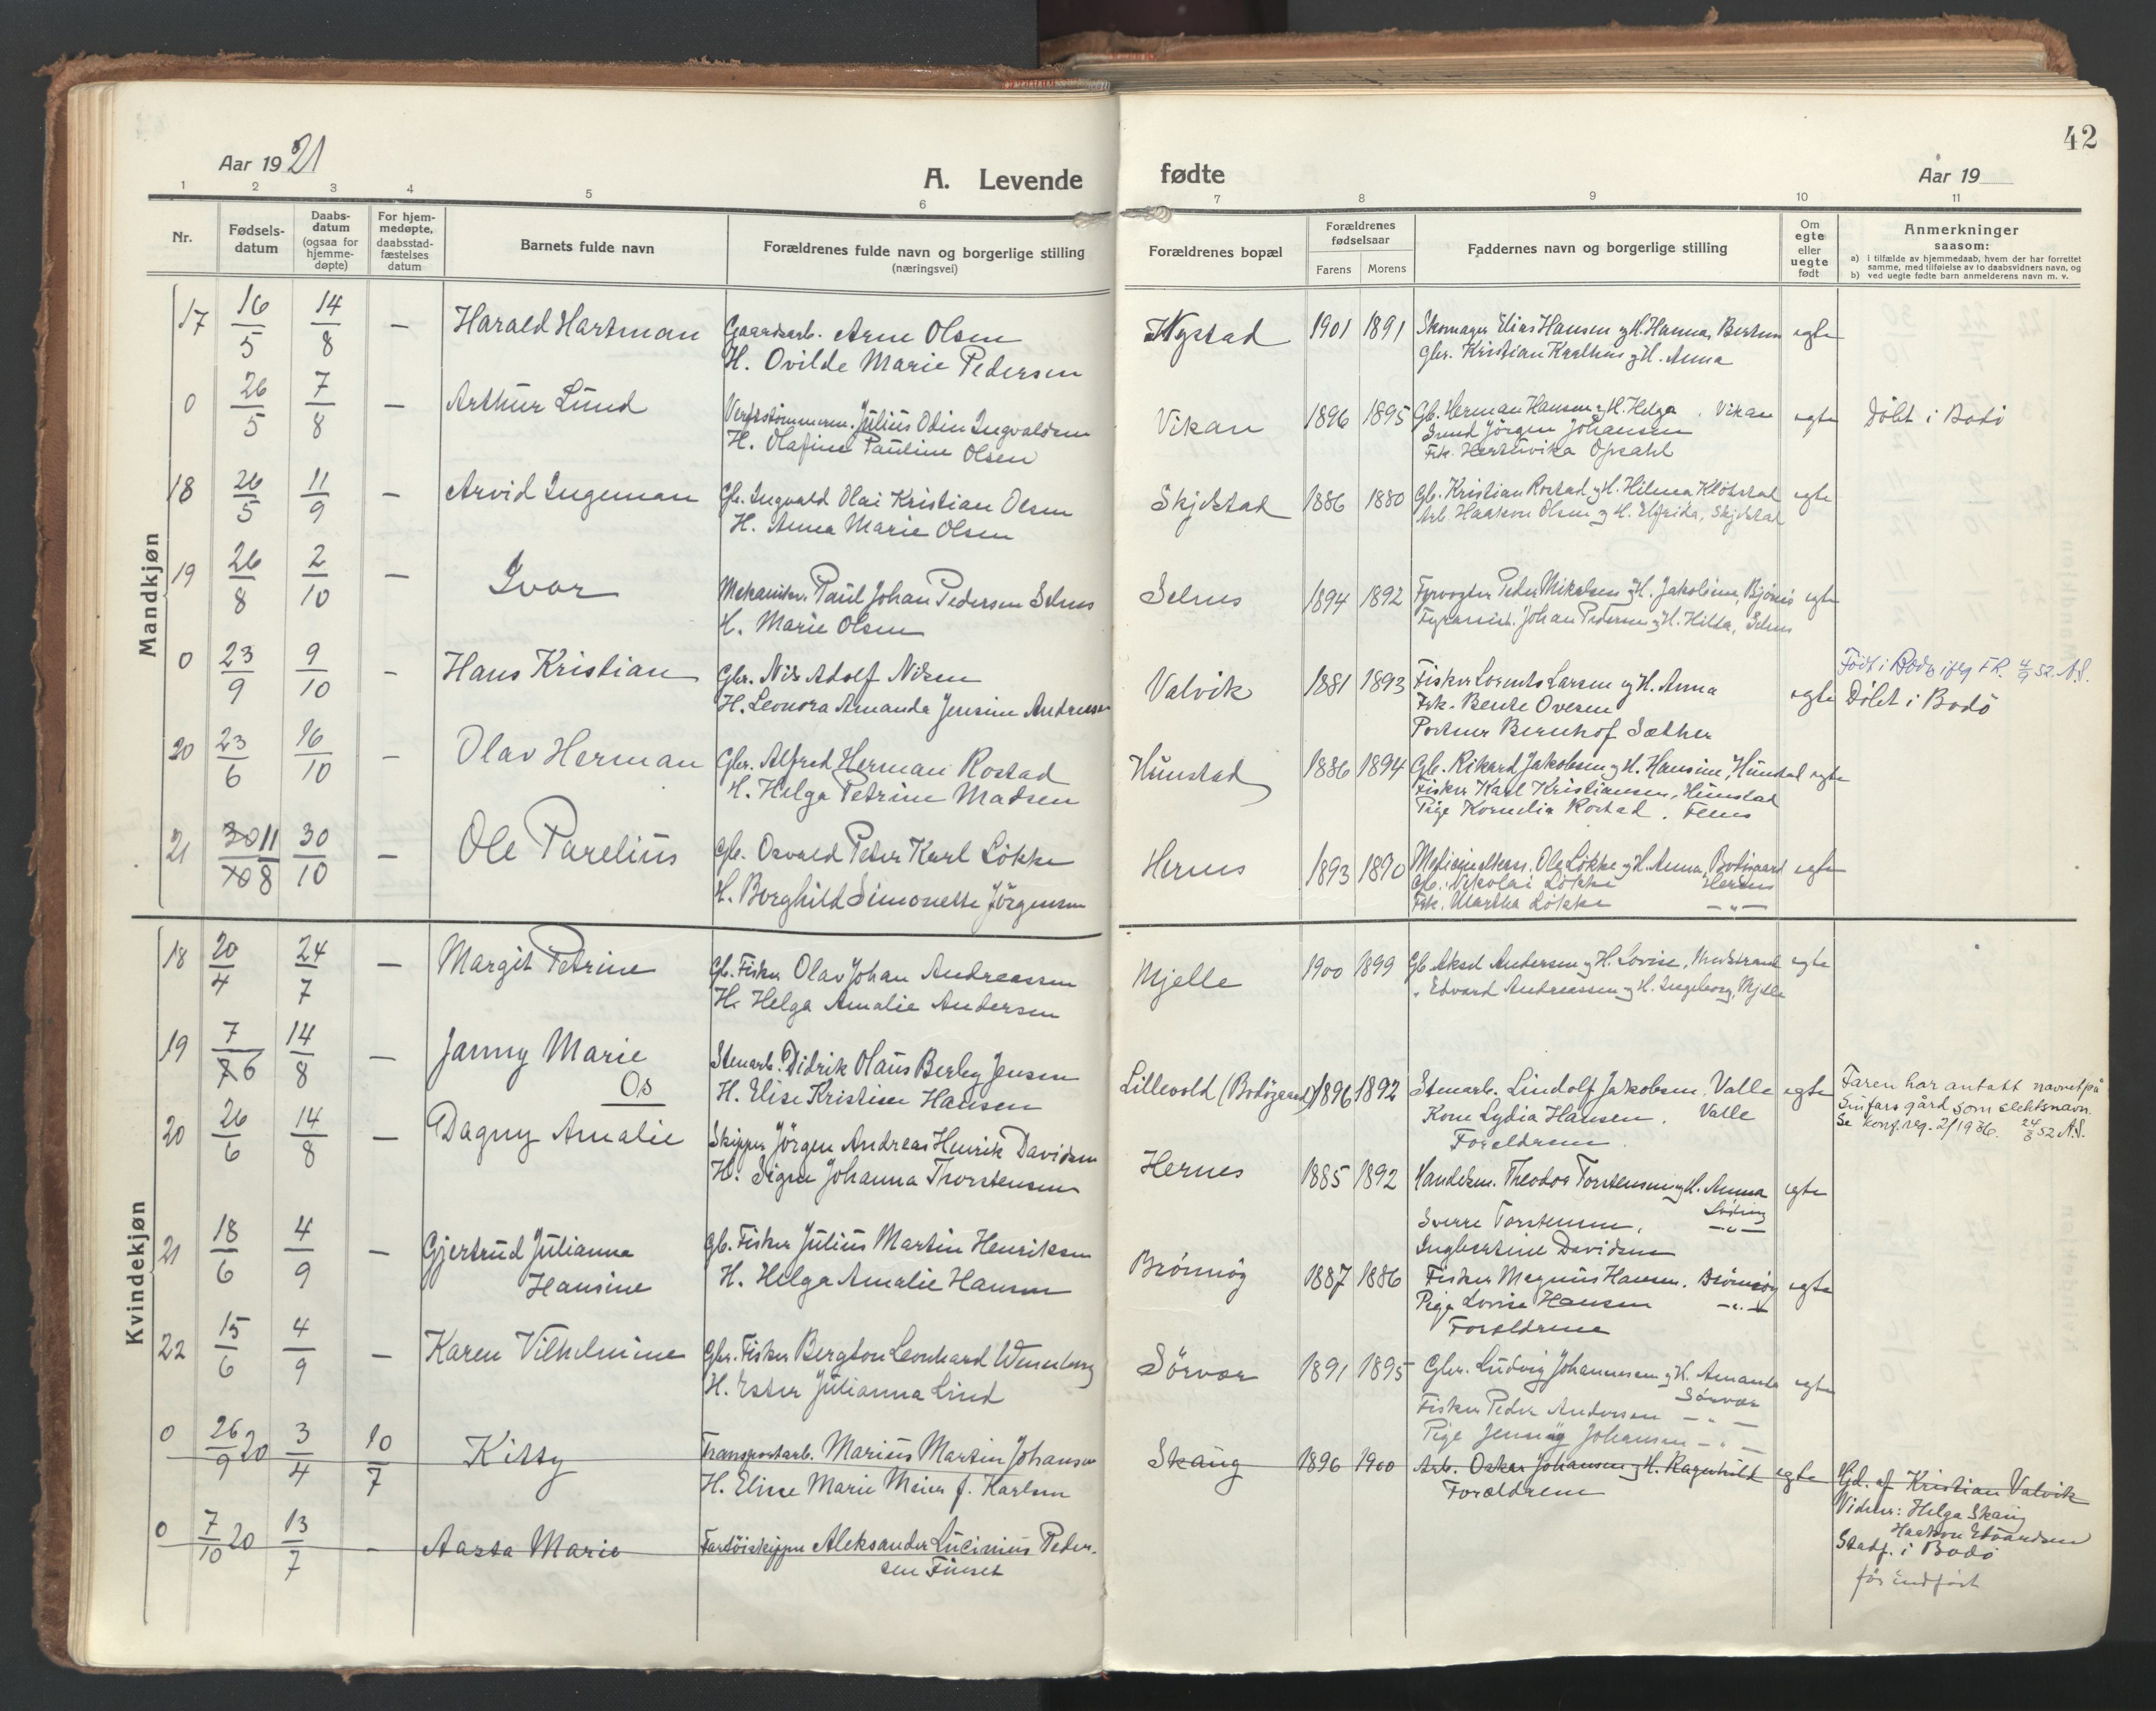 42
Aar 1921
A. Levende
fødte
Aar 19
1 2 3 4 5 6 7 8 9 10 11
Nr.
Fødsels-
datum
Daabs-
datum
(ogsaa for
hjemme-
døpte)
For hjem-
medøpte,
daabsstad-
fæstelses
datum
Barnets fulde navn
Forældrenes fulde navn og borgerlige stilling
(næringsvei)
Forældrenes bopæl
Forældrenes
fødselsaar
Farens Morens
Faddernes navn og borgerlige stilling
Om
egte
eller
uegte
født
Anmerkninger
saasom:
a) i tilfælde av hjemmedaab, hvem der har forrettet
samme, med tilføielse av to daabsvidners navn, og
b) ved uegte fødte barn anmelderens navn m. v.
Mandkjøn
17 16/5 14/8 – Harald Hartman Gaardsarb. Arne Olsen Nystad 1901 1891 Skomager Elias Hansen og H. Hanna, egte
H. Ovilde Marie Pedersen Gbr. Kristian og H. Anna
0 26/5 7/8 – Arthur Lund Julius Odin Ingvaldsen Vikan 1896 1895 Gb. Herman Hansen og H. Helga, Vikan egte Døbt i Bodø
H. Olafine Pauline Olsen Jørgen Johansen
Frk. Opsahl
18 26/5 11/9 – Arvid Ingeman Gb. Ingvald Olai Kristian Olsen Skjelstad 1886 1880 Gb. Kristian Rostad og H. Hilma egte
H. Anna Marie Olsen Arb. Haakon Olsen og H. Elfrida, Skjelstad
19 26/8 2/10 – Ivar Mekaniker Paul Johan Pedersen Selnes Selnes 1894 1892 Fyrvogter Peder Mikalsen og H. Jakobine, egte
H. Marie Olsen Fyrassist. Johan Pedersen og H. Hilda, Selnes
0 23/9 9/10 – Hans Kristian Gbr. Nils Adolf Nilsen Valvik 1881 1893 Fisker Lorents Larsen og H. Anna egte Født i Bodø iføg F.R. 4/9 52. A.S.
H. Leonora Amanda Jensine Andreassen Frk. Bente Ovesen Døbt i Bodø
Bernhof Sæther
20 23/6 16/10 – Olav Herman Gbr. Alfred Herman Rostad Hunstad 1886 1894 Gb. Rikard Jakobsen og H. Hansine, Hunstad egte
H. Helga Petrine Madsen Fisker Karl Kristiansen, Hunstad
Pige Kornelia Rostad,
21 30/10 11/8 30/10 – Ole Parelius Gb. Osvald Peter Karl Løkke Hernes 1893 1890 Ole Løkke og H. Anna, Bodøgaard egte
H. Borghild Simonette Jørgensen Gb. Nikolai Løkke Hernes
Frk. Martha Løkke –"–
Kvindekjøn
18 20/4 24/7 – Margit Petrine Gb. Fisker Olav Johan Andreassen Mjelle 1900 1899 Gb. Aksel Andersen og H. Lovise, egte
H. Helga Amalie Andersen " Edvard Andreassen og H. Ingeborg, Mjelle
19 7/8 6 14/8 – Janny Marie Stenarb. Didrik Olaus Berby Jensen Lillevold (Bodøgaard) 1896 1892 Stenarb. Lindolf Jakobsen, Valle egte Faren har antatt navnet på
Os H. Elise Kristine Hansen Kone Lydia Hansen, Valle Sin fars gård som slektsnavn.
Forældrene Se konf.reg. 2/1936. 24/8 52 A.S.
20 26/6 14/8 – Dagny Amalie Skipper Jørgen Andreas Henrik Davidsen Hernes 1885 1892 Handelsm. Theodor Torstensen og H. Anna egte
H. Signe Johanna Thorstensen Løding
Sverre Torstensen, –"–
Ingbertine Davidsen
21 18/6 4/9 – Gjertrud Julianna Gb. Fisker Julius Martin Henriksen Brønnøy 1887 1886 Fisker Magnus Hansen, Brønnøy egte
Hansine H. Helga Amalie Hansen Pige Lovise Hansen –"–
Forældrene
22 15/6 4/9 – Karen Vilhelmine Gbr. Fisker Bergton Leonhard Wennberg Sørvær 1891 1895 Gbr. Ludvig Johannesen og H. Amanda egte
H. Ester Julianna Lind Sørvær
Fisker Peder Andersen –"–
Pige Jenny Johansen –"–
0 26/9 20 3/4 10/7 Kitty Transportarb. Marius Martin Johansen Skaug 1896 1900 Arb. Oskar Johansen og H. Ragnhild egte Hjd. af Kristian Valvik
H. Elise Marie Meier f. Karlsen Forældrene Vidner: Helga Skaug
Haakon Edvardsen
Stadf. i Bodø
0 7/10 20 13/7 – Aasta Marie Fartøiskipper Aleksander Lucinius Peder-
sen Finset
før indført